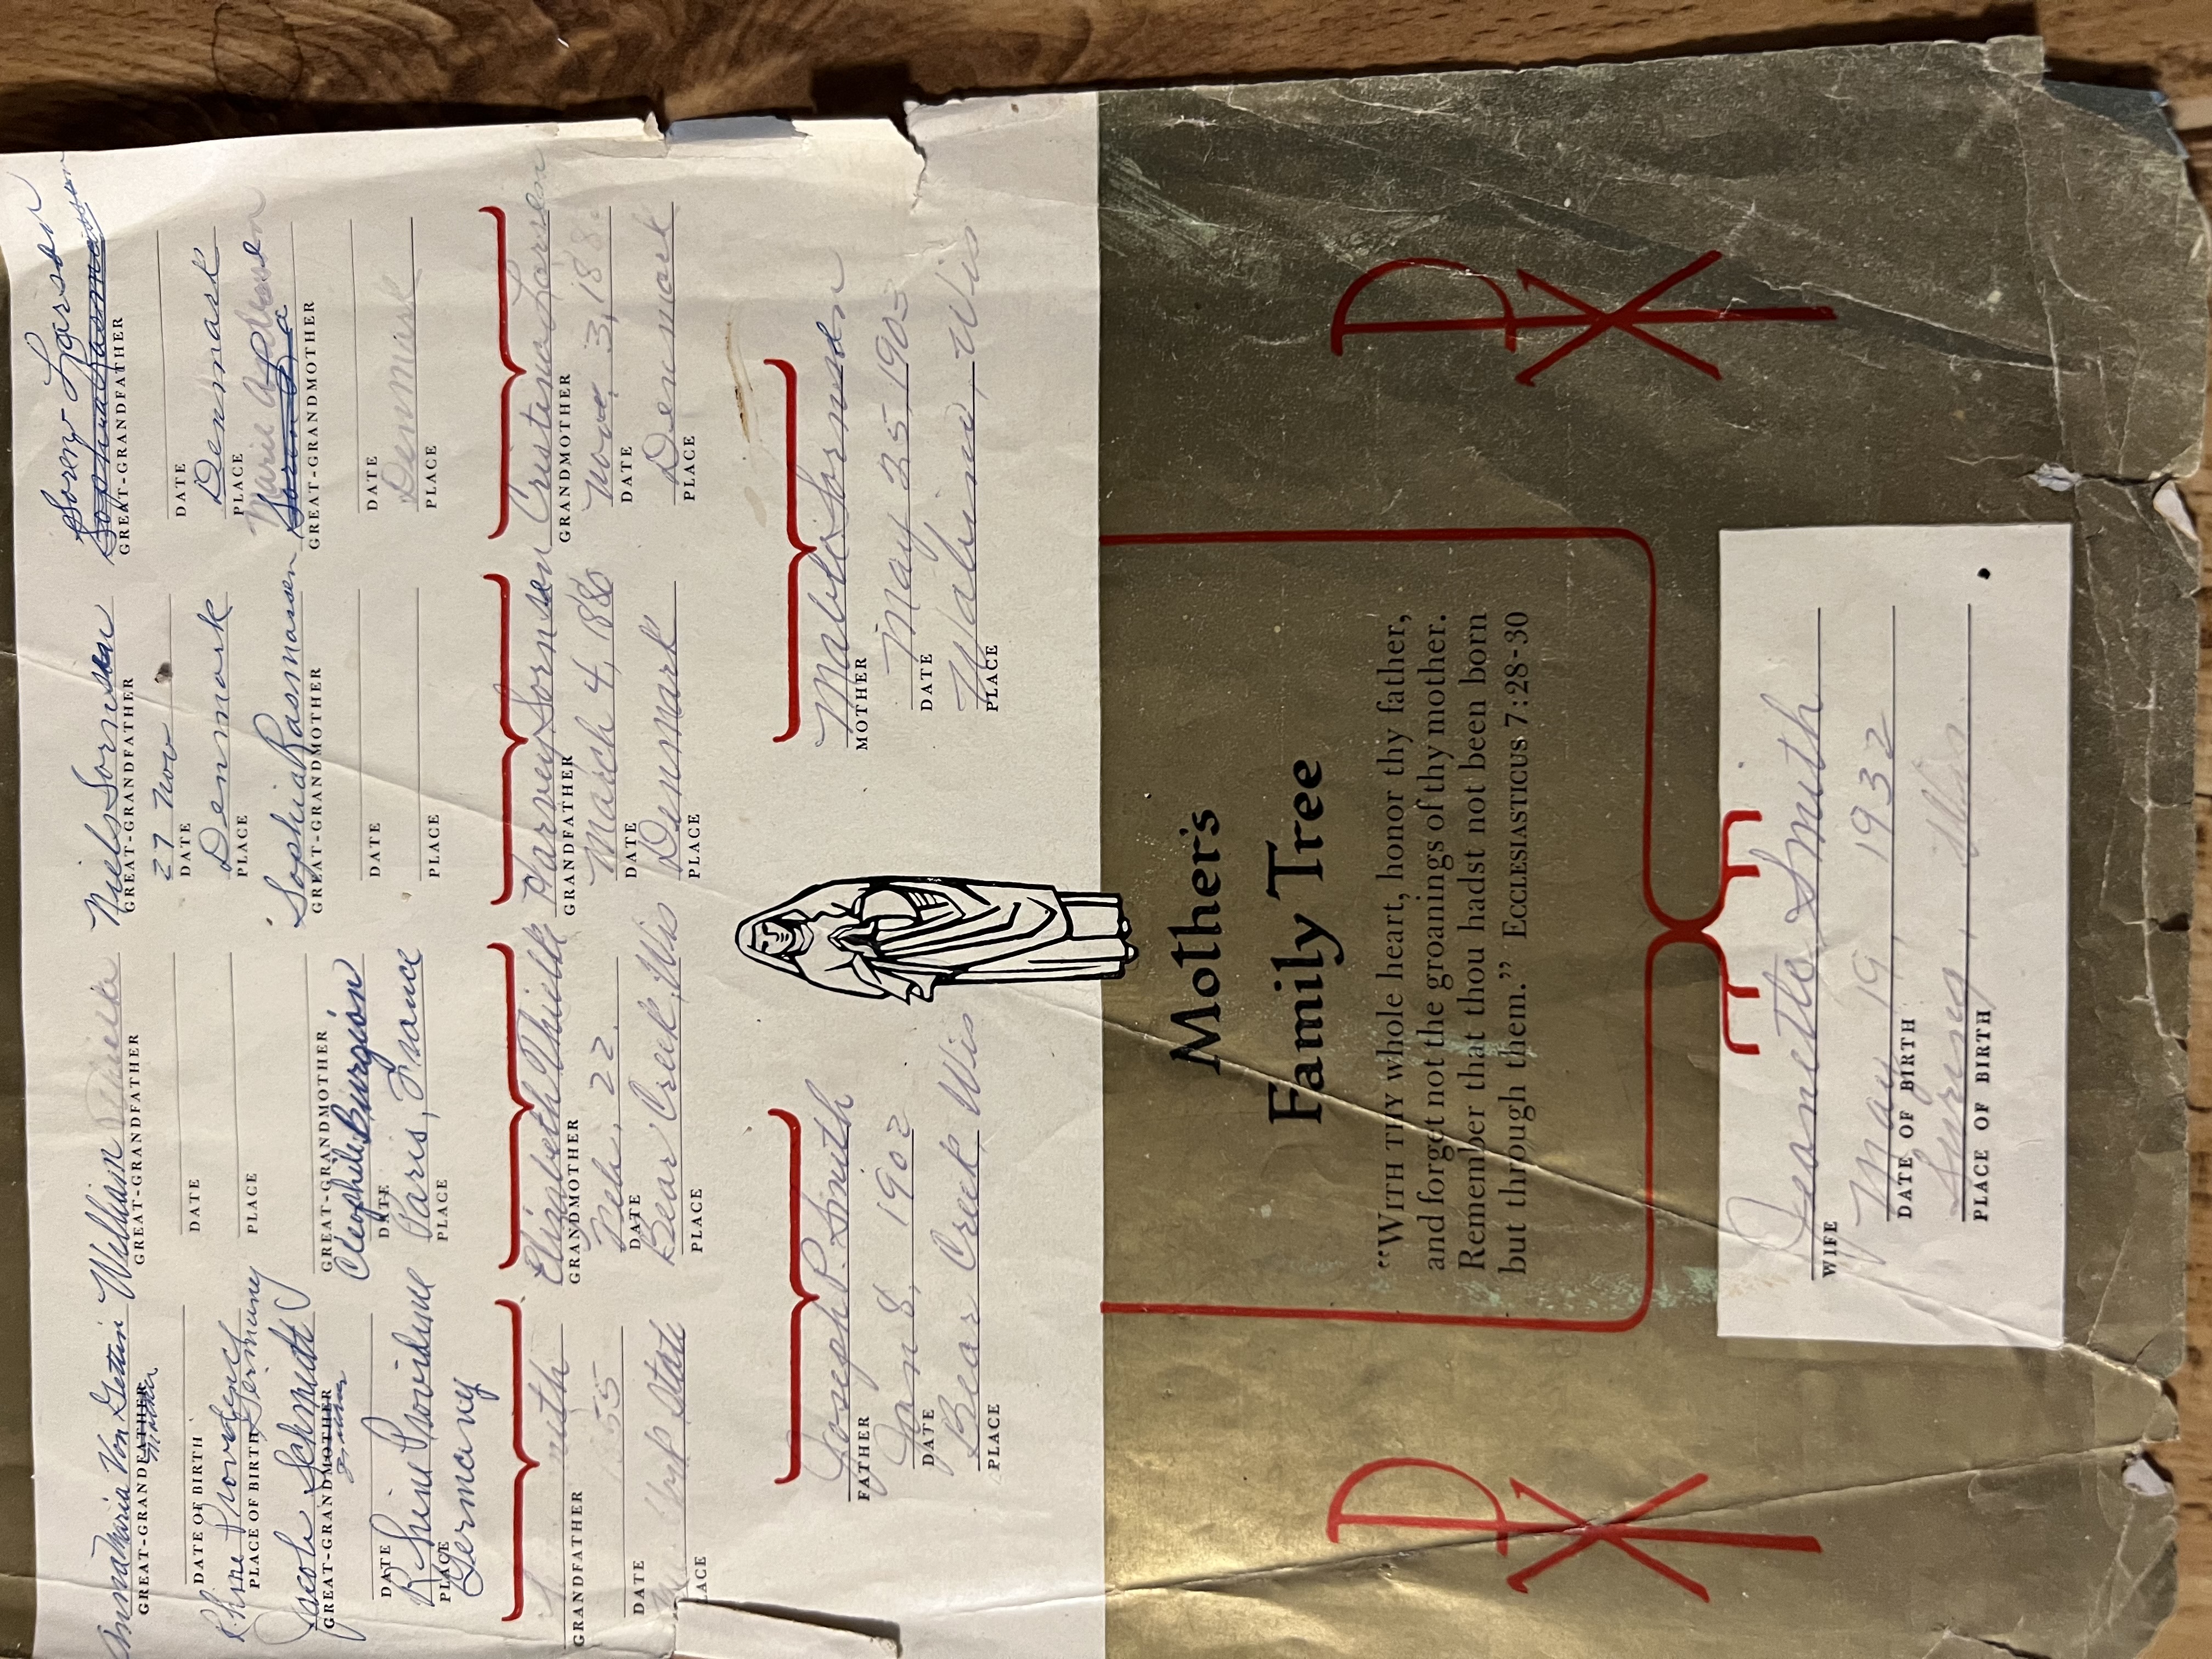 Anna Maria Von Gettin
GREAT-GRANDFATHER
Mother
DATE OF BIRTH
Rhine Providence
PLACE OF BIRTH Germany
Jacob Schmidt
GREAT-GRANDMOTHER
DATE
Rhine Providence
PLACE
Germany
William Thielke
GREAT-GRANDFATHER
DATE
PLACE
GREAT-GRANDMOTHER
Cleophile Burgion
DATE
Paris, France
PLACE
Niels Sornsen
GREAT-GRANDFATHER
27 Nov
DATE
Denmark
PLACE
Sophia Rasmassen
GREAT-GRANDMOTHER
DATE
PLACE
Soren Larson
GREAT-GRANDFATHER
DATE
Denmark
PLACE
Marie
GREAT-GRANDMOTHER
DATE
Denmark
PLACE
GRANDFATHER
DATE
State
PLACE
Elisabeth Thielke
GRANDMOTHER
Feb. 22
DATE
Bear Creek, Wis
PLACE
Harvey Sornsen
GRANDFATHER
March 4, 1880
DATE
Denmark
PLACE
Cristena Larsen
GRANDMOTHER
Nov. 3, 188
DATE
Denmark
PLACE
Joseph P. Smith
FATHER
Jan 8, 1902
DATE
Bear Creek Wis
PLACE
Mable Sornsen
MOTHER
May 25, 1903
DATE
Wis
PLACE
Mother's
Family Tree
“WITH THY whole heart, honor thy father,
and forget not the groanings of thy mother.
Remember that thou hadst not been born
but through them.” ECCLESIASTICUS 7:28-30
Jeanette Smith
WIFE
May 19 1932
DATE OF BIRTH
Suring, Wis.
PLACE OF BIRTH